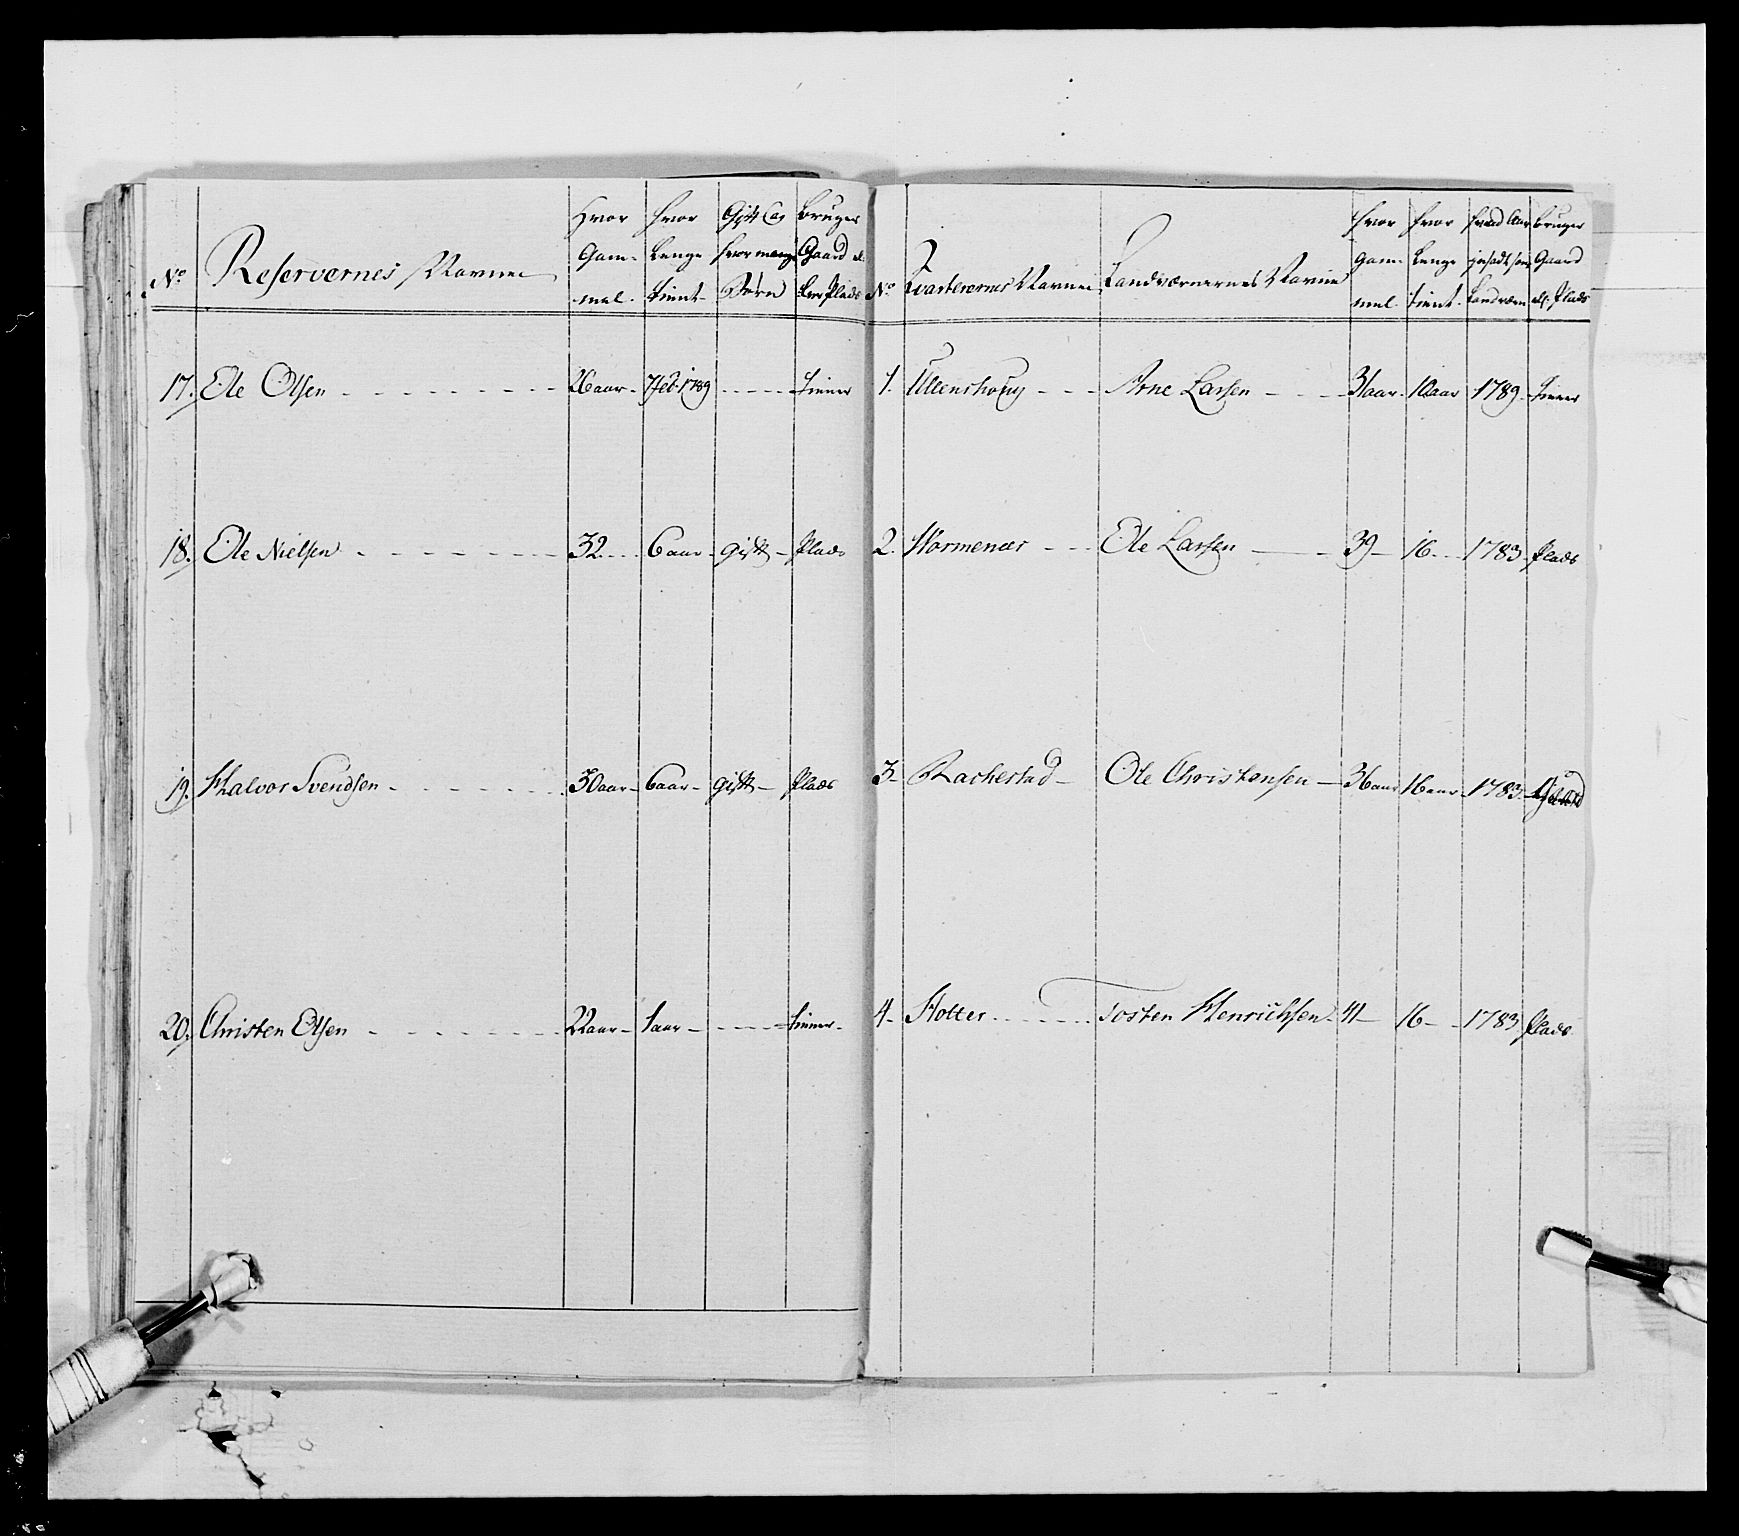 No Reservernes Navne Hvor Gam- mel. Hvor Lenge tient- Gift og hvor mange Børn Bruger Gaard el- ler Plads
17. Ole Olsen 26 aar 7 Feb. 1789 tiener
18. Ole Nielsen 32 6 aar gift Plads
19. Halvor Svendsen 30 aar 6 aar gift Plads
20. Christen Olsen 22 aar 1 aar tiener
No Qvarterernes Navne Landværnernes Navne Hvor gam- mel. Hvor Lenge tient. Hvad Aar Landværn Bruger Gaard el. Plads
1. Ullenshoug Arne Larsen 31 aar 10 aar 1789 tiener
2. Hormenær Ole Larsen 39 16 1783 Plads
3. Rachestad Ole Christensen 36 aar 16 aar 1783 Gaard
4. Hotter Tosten Henrichsen 41 16 1783 Plads